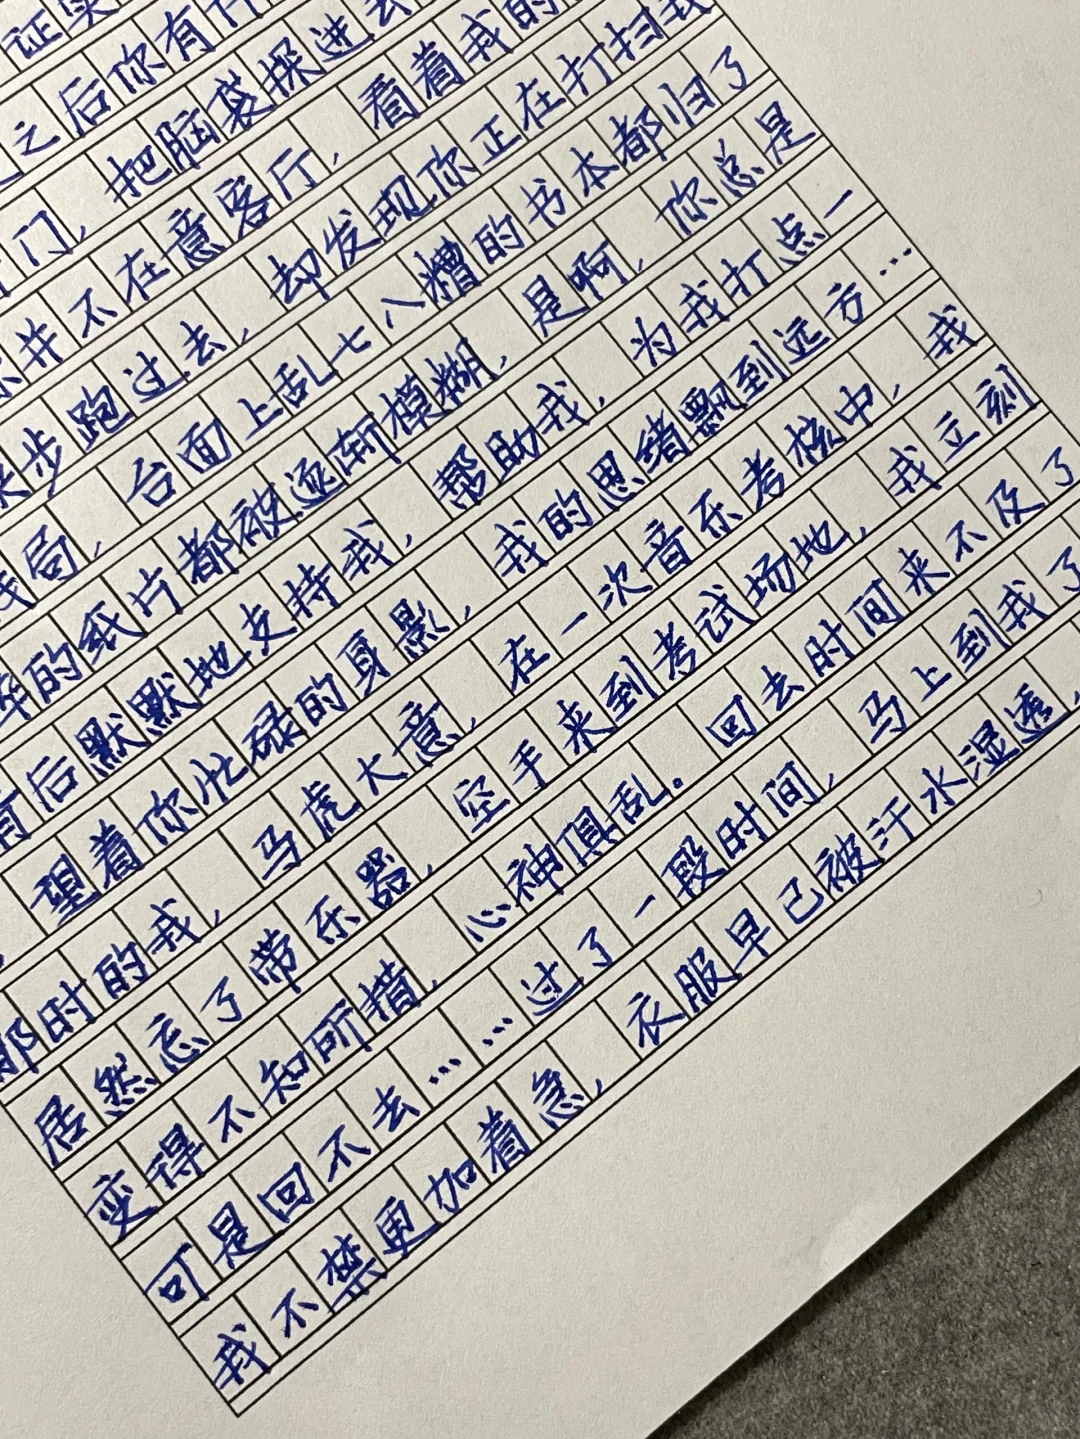 证实
之后你有什
门，把脑袋探进去
并不在意客厅，看着我的
步跑过去，却发现你正在打扫我
局，台面上乱七八糟的书本都归了
的纸片都被逐渐模糊，是啊，你总是
背后默默地支持我，帮助我，为我打点一
望着你忙碌的身影，我的思绪飘到远方…
那时的我，马虎大意，在一次音乐考核中，我
居然忘了带乐器，空手来到考试场地，我立刻
变得不知所措，心神俱乱。回去时间来不及了
可是回不去……过了一段时间，马上到我了
我不禁更加着急，衣服早已被汗水湿透，